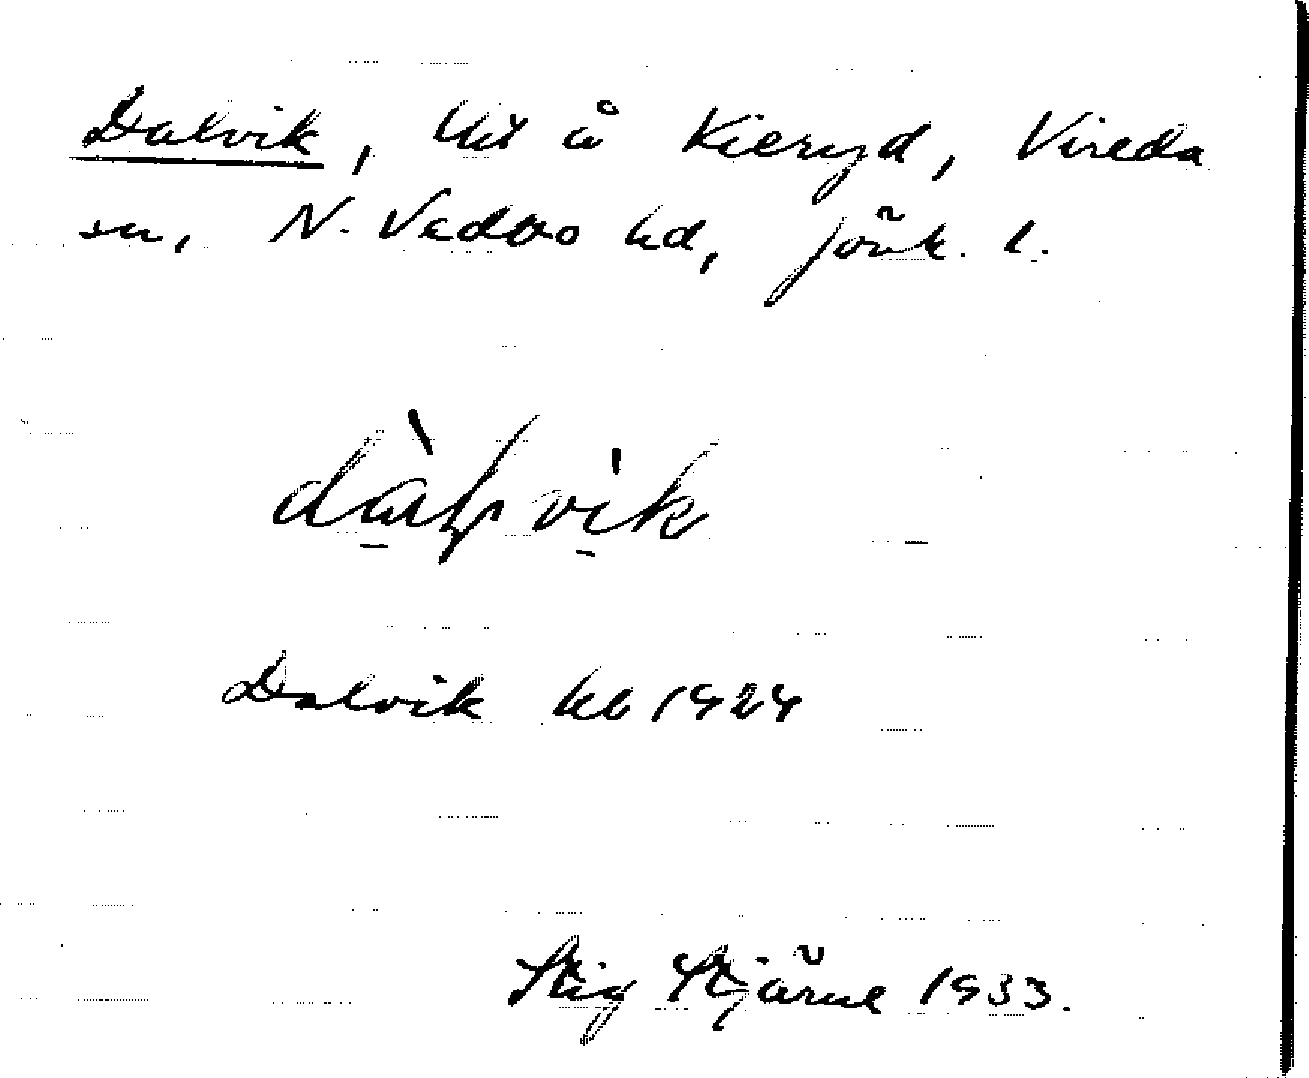 Dalvik, lht å Kieryd, Vireda
sn, N. Vedbo hd, Jönk. l.
Dalvik kb 1924
Stig Stjärne 1933.